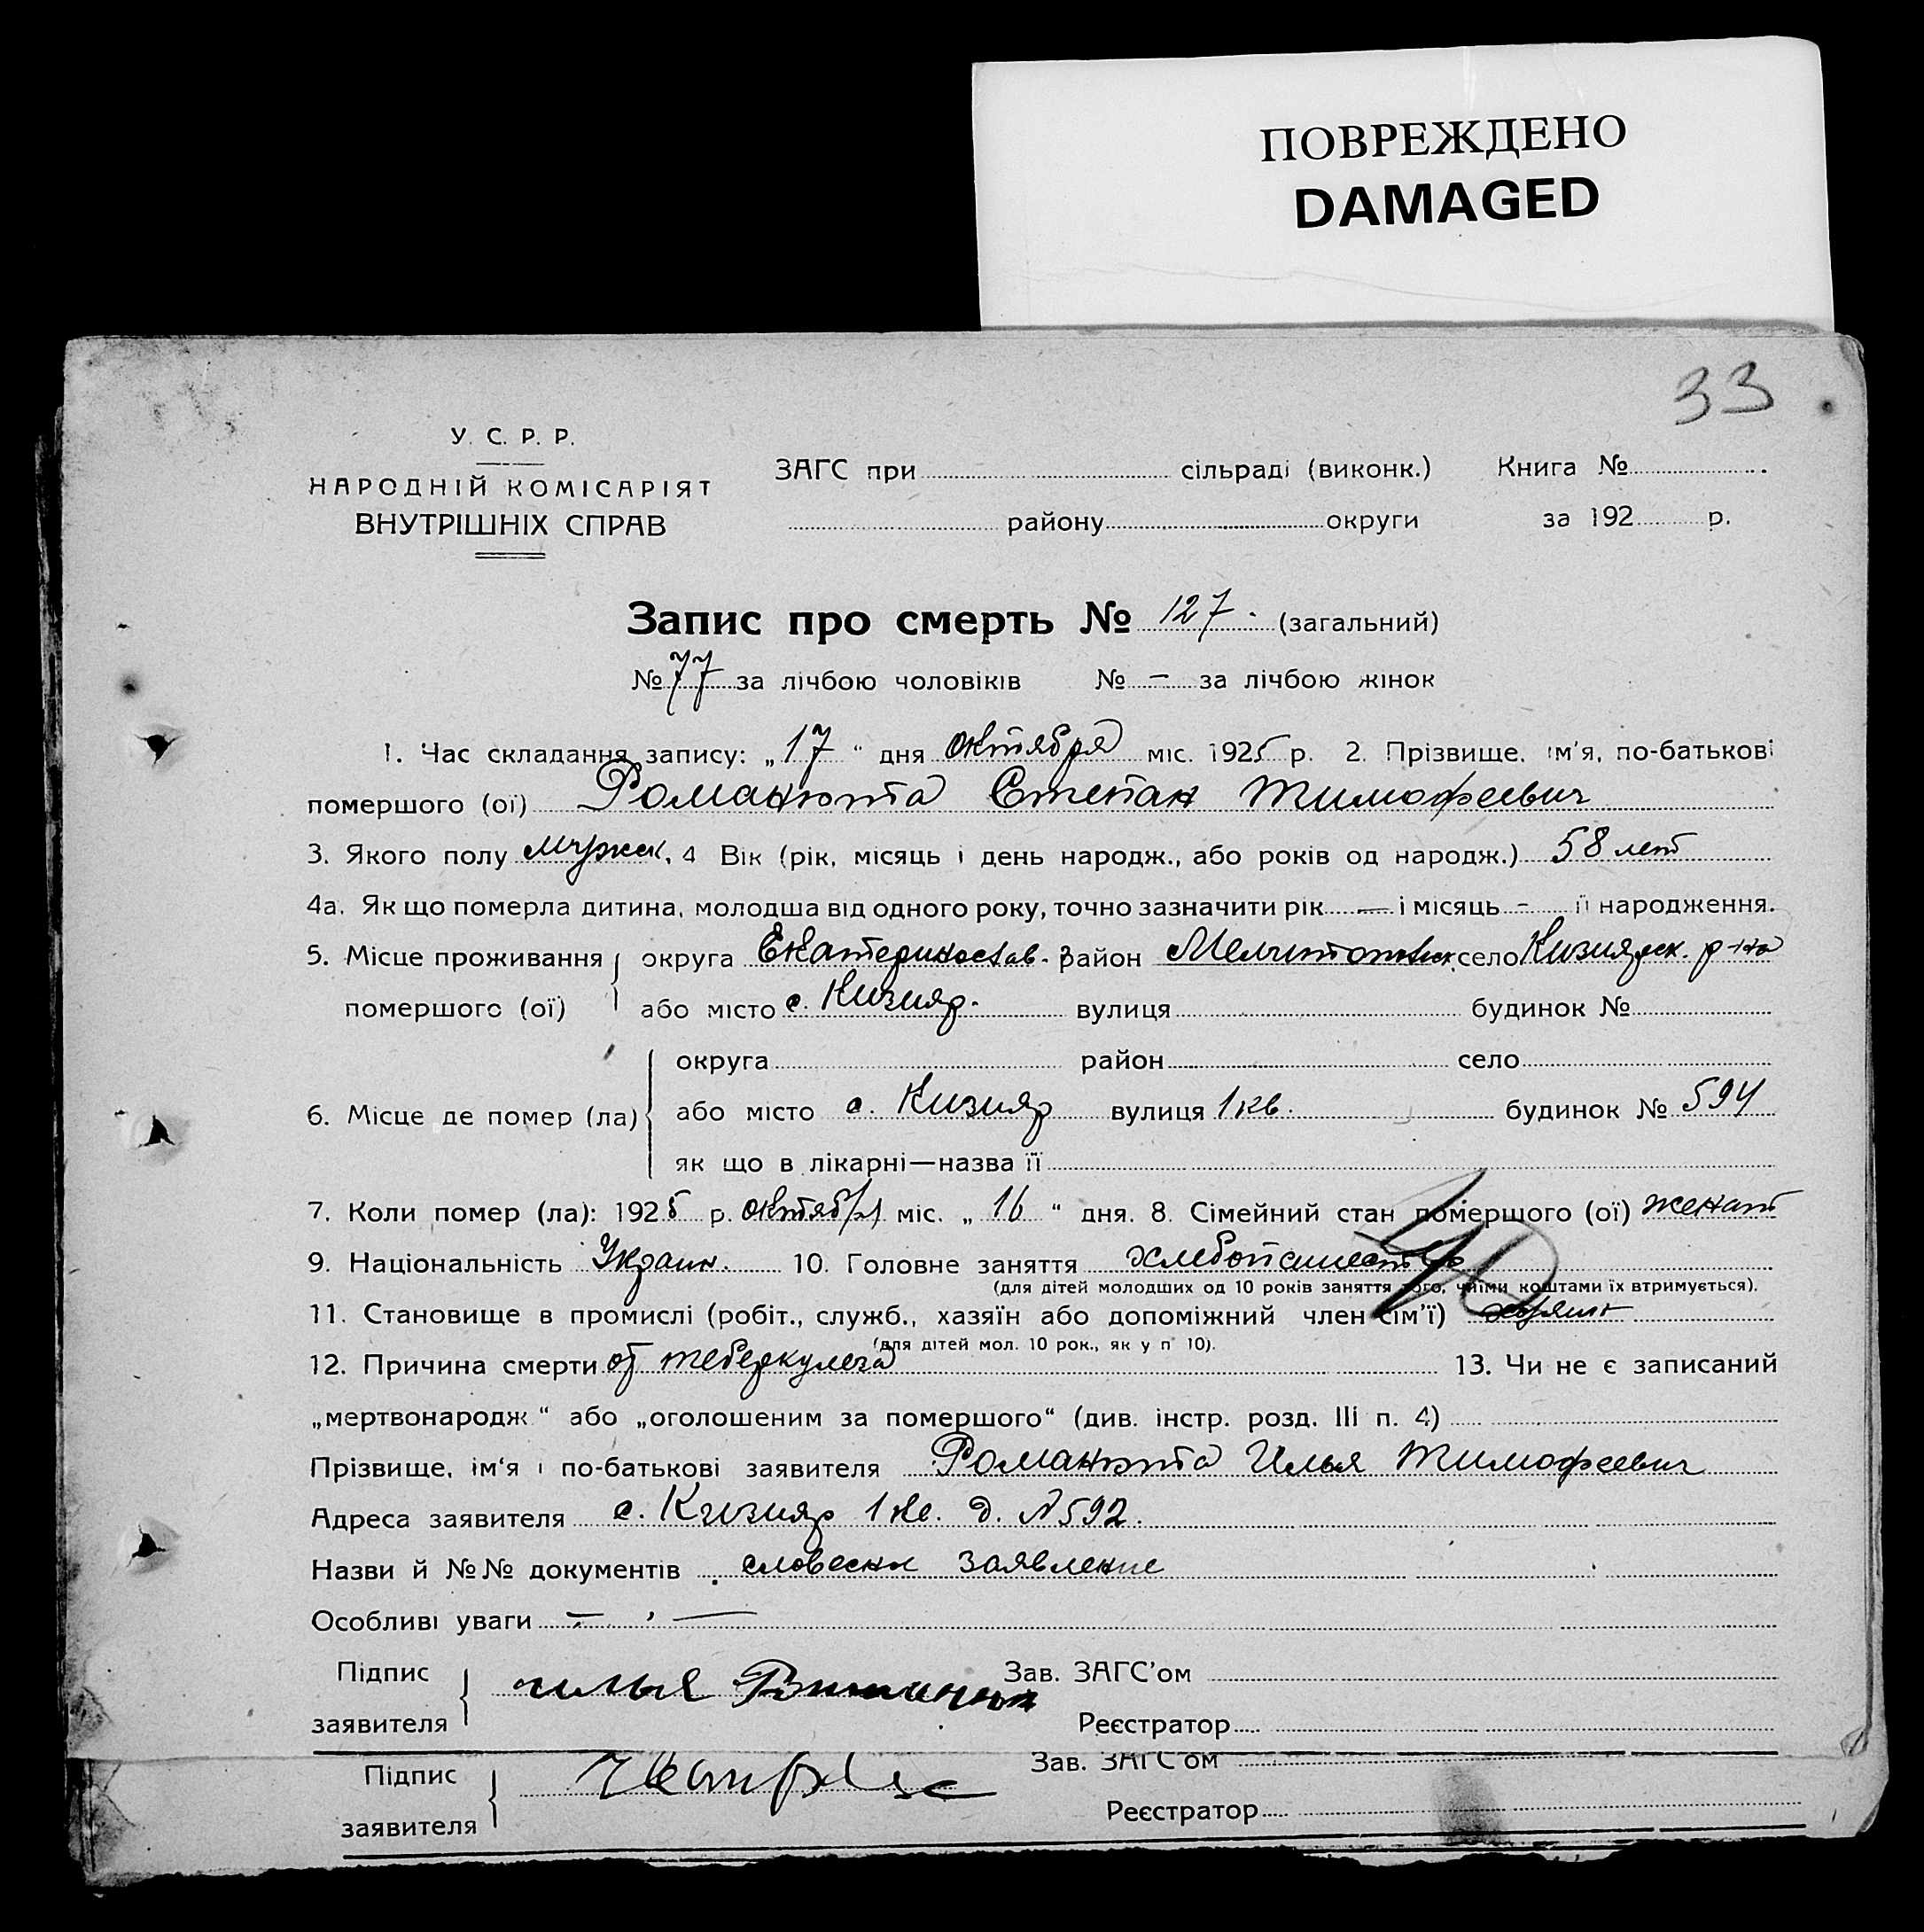 ПОВРЕЖДЕНО
DAMAGED
33
У. С. Р. Р.
НАРОДНІЙ КОМІСАРІЯТ
ВНУТРІШНІХ СПРАВ
ЗАГС при сільраді (виконк.) Книга №
району округи за 192 р.
Запис про смерть № 127. (загальний)
№ 77 за лічбою чоловіків № — за лічбою жінок
1. Час складання запису: „17“ дня октября міс. 1925 р. 2. Прізвище, ім'я, по-батькові
помершого (ої) Романюта Степан Тимофеевич
3. Якого полу мужск, 4 Вік (рік, місяць і день народж., або років од народж.) 58 лет
4а. Як що померла дитина, молодша від одного року, точно зазначити рік — і місяць - її народження.
5. Місце проживання округа Екатеринослав. район село Кизиярск. р-на
помершого (ої) або місто с. Кизияр. вулиця будинок №
округа район село
6. Місце де помер (ла) або місто с. Кизияр вулиця 1 кв. будинок № 594
як що в лікарні—назва її
7. Коли помер (ла): 1925 р. октября міс. „16“ дня. 8. Сімейний стан помершого (ої) женат
9. Національність Украин. 10. Головне заняття
(для дітей молодших од 10 років заняття того, чиїми коштами їх втримується).
11. Становище в промислі (робіт., служб., хазяїн або допоміжний член сім'ї) хозяин
(для дітей мол. 10 рок., як у п 10).
12. Причина смерти от теберкулеза 13. Чи не є записаний
„мертвонародж.“ або „оголошеним за помершого“ (див. інстр. розд. III п. 4)
Прізвище, ім'я і по-батькові заявителя Романюта Илья Тимофеевич
Адреса заявителя с. Кизияр 1 кв. д. № 592.
Назви й №№ документів словесн заявление
Особливі уваги — —
Підпис илья Зав. ЗАГС'ом
заявителя Реєстратор
Підпис Зав. ЗАГС'ом
заявителя Реєстратор